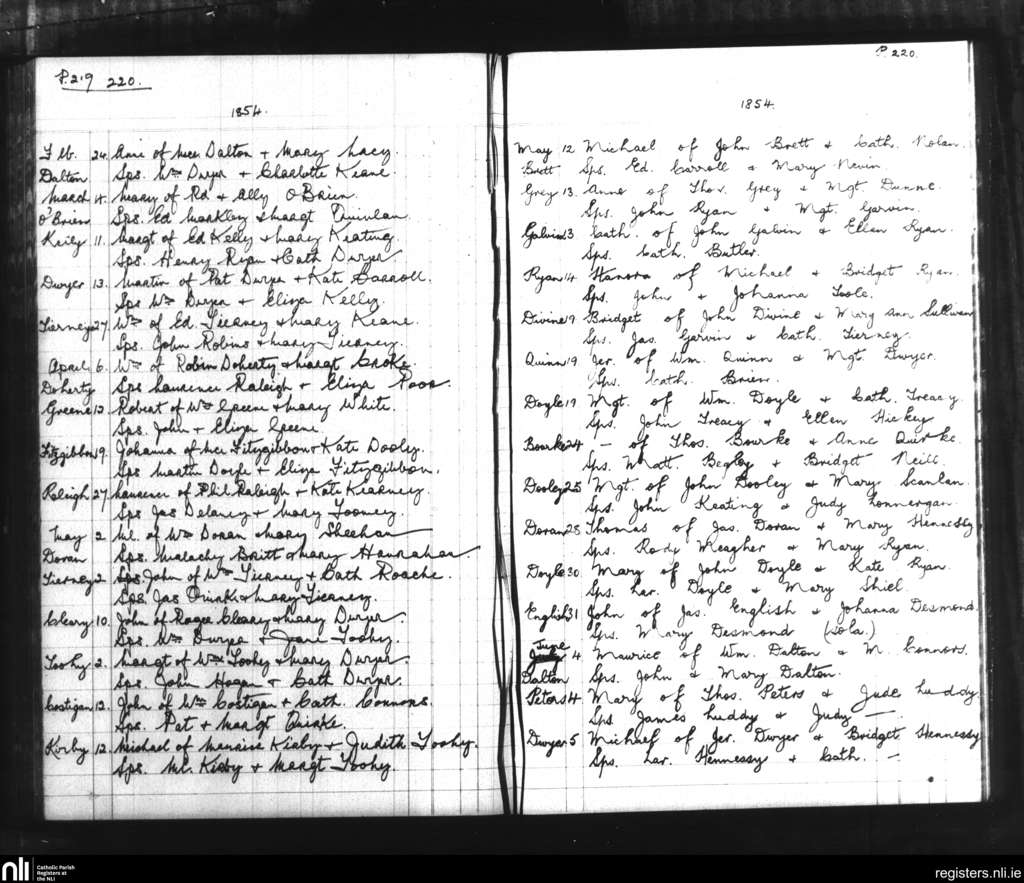 P. 219 220.
1854.
Feb. 24. Anne of Mce Dalton + Mary Lacy.
Dalton Sps. Wm Dwyer + Charlotte Keane
March 4. Mary of Rd + Ally O'Brien.
O'Brien Sps. Ed Markley + Margt Quinlan
Keily 11. Margt of Ed Kelly + Mary Keating
Sps. Henry Ryan + Cath Dwyer
Dwyer 13. Martin of Pat Dwyer + Kate Carroll.
Sps Wm Dwyer + Eliza Kelly.
Tierney 27. Wm of Ed. Tierney + Mary Keane.
Sps. John Robins + Mary Tierney.
April 6. Wm of Robin Doherty + Margt Croke
Doherty Sps Laurence Raleigh + Eliza
Greene 12. Robert of Wm Greene + Mary White.
Sps. John + Eliza Greene.
Fitzgibbon 19. Johanna of Mce Fitzgibbon + Kate Dooley.
Sps Martin Doyle + Eliza Fitzgibbon.
Raleigh 27. Laurence of Phil Raleigh + Kate Kearney.
Sps Jas Delaney + Mary Looney.
May 2 Ml. of Wm Doran + Mary Sheehan
Doran Sps. Malachy Britt + Mary Hanrahan
Tierney 2. Sps. John of Wm Tierney + Cath Roache.
Sps Jas Quirk + Mary Tierney.
Cleary 10. John of Roger Cleary + Mary Dwyer.
Sps. Wm Dwyer + Jane Toohy.
Toohy 2. Margt of Wm Toohy + Mary Dwyer.
Sps. John Hogan + Cath Dwyer.
Costigan 12. John of Wm Costigan + Cath. Connors.
Sps. Pat + Margt Quirke.
Kirby 12. Michael of Maurice Kirby + Judith Toohy.
Sps. Ml. Kirby + Margt Toohy.
P. 220.
1854.
May 12 Michael of John Brett + Cath. Nolan.
Brett Sps. Ed. Carroll + Mary Nevin
Grey 13. Anne of Thos. Grey + Mgt. Dunne.
Sps. John Ryan + Mgt. Garvin.
Galvin 13 Cath. of John Galvin + Ellen Ryan.
Sps. Cath. Butler.
Ryan 14 Hanora of Michael + Bridget Ryan.
Sps. John + Johanna Toole.
Divine 19 Bridget of John Divine + Mary Ann Sullivan
Sps. Jas. Garvin + Cath. Tierney.
Quinn 19 Jer. of Wm. Quinn + Mgt. Dwyer.
Sps. Cath. Brien.
Doyle 19 Mgt. of Wm. Doyle + Cath. Treacy.
Sps. John Treacy + Ellen Hickey
Bourke 24 — of Thos. Bourke + Anne Quirke.
Sps. Matt. Begley + Bridget Neill.
Dooley 25 Mgt. of John Dooley + Mary Scanlan.
Sps. John Keating + Judy Lonnergan.
Doran 28 Thomas of Jas. Doran + Mary Hennessy
Sps. Rody Meagher + Mary Ryan.
Doyle 30. Mary of John Doyle + Kate Ryan.
Sps. Lar. Doyle + Mary Shiel
English 31 John of Jas. English + Johanna Desmond.
Sps. Mary Desmond (Sola.)
June
4 Maurice of Wm. Dalton + M. Connors.
Dalton Sps. John + Mary Dalton.
Peters 4 Mary of Thos. Peters + Jude Luddy
Sps James Luddy + Judy —
Dwyer 5 Michael of Jer. Dwyer + Bridget Hennessy
Sps. Lar. Hennessy + Cath. —
nli Catholic Parish
Registers at
the NLI
registers.nli.ie